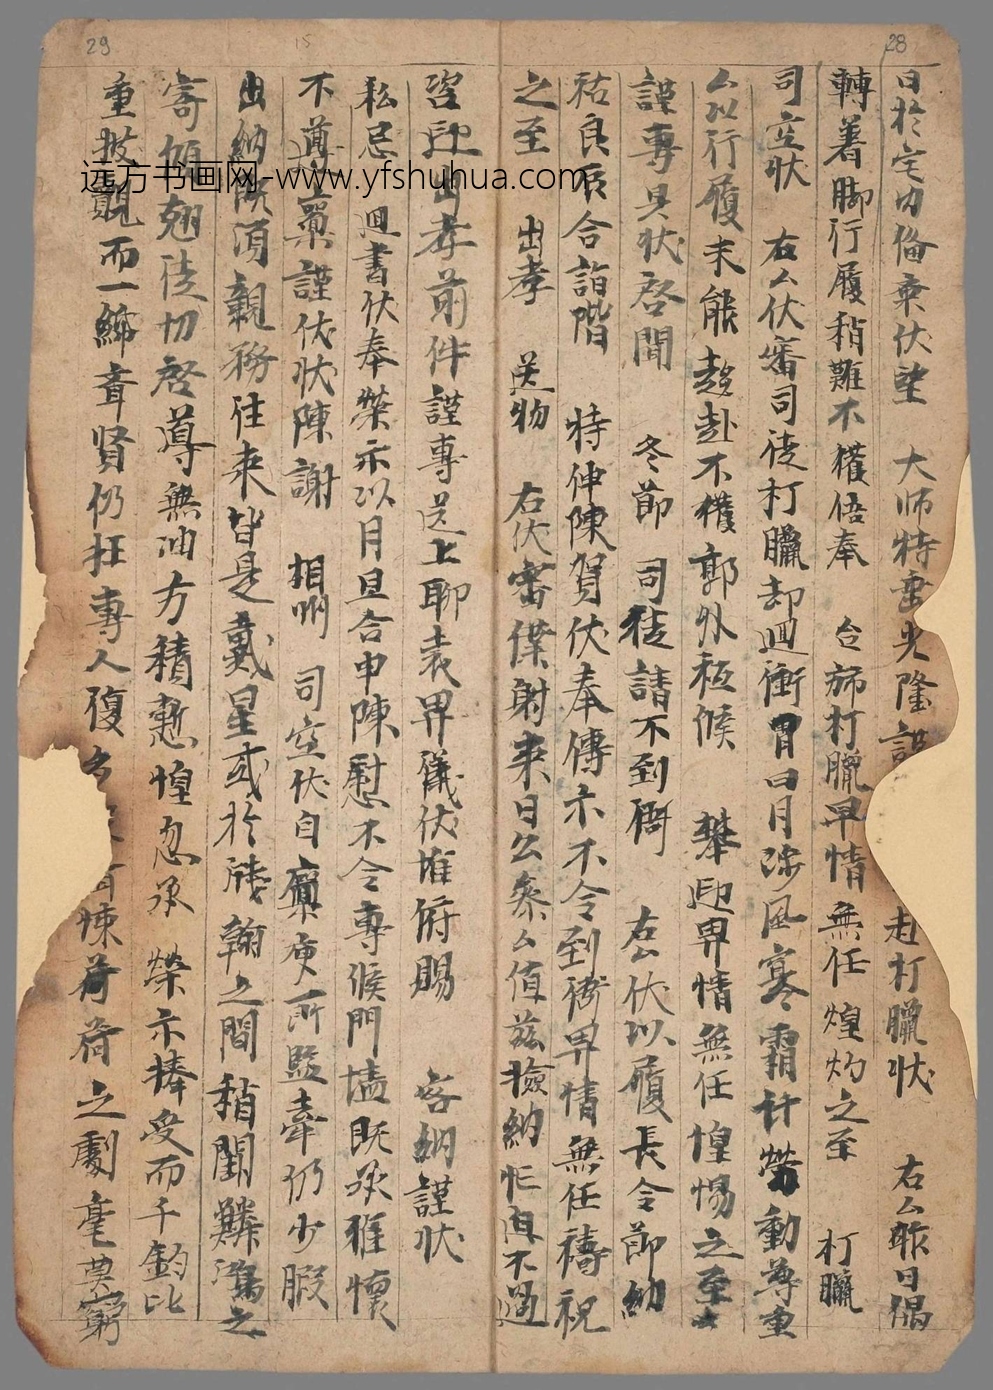 28
日於宅切俻柬伏望　大师特垂光隆謹 赴打臘状　右厶昨日偶
轉著脚行履稍難不獲倍奉　台旆打臘早情無任煌灼之至　打臘
司空状　右厶伏審司徒打臘却迴衝冒日月涉風寒霜計勞動尊重
厶以行履未能趍赴不獲郭外秪候　攀迎畀情無任惶惕之至
謹專具状啓聞　冬節　司徒請不到衙　右厶伏以履長令節納
祐良辰合詣階　特伸陳賀伏奉傳示不令到衙畀情無任禱祝
之至　出孝　送物　右伏審僕射来日公 厶值茲撿納忙迫不過
迎出孝前件謹專送上聊表畀儀伏惟俯賜　容納謹状
私忌迴書伏奉榮示以月旦合申陳慰不令專候門墻既承雅懷
不 謹伏状陳謝　相州　司空伏自 所監牽仍少暇
出納既須親務往来皆是戴星或於牋翰之間稍闕鱗鴻之
寄傾翹徒切啓 無油方積慙惶忽承　榮示捧受而千鈞比
重披覩而一 賢仍狂專人復 悚荷荷之劇毫莫窮
29
15
远方书画网-www.yfshuhua.com